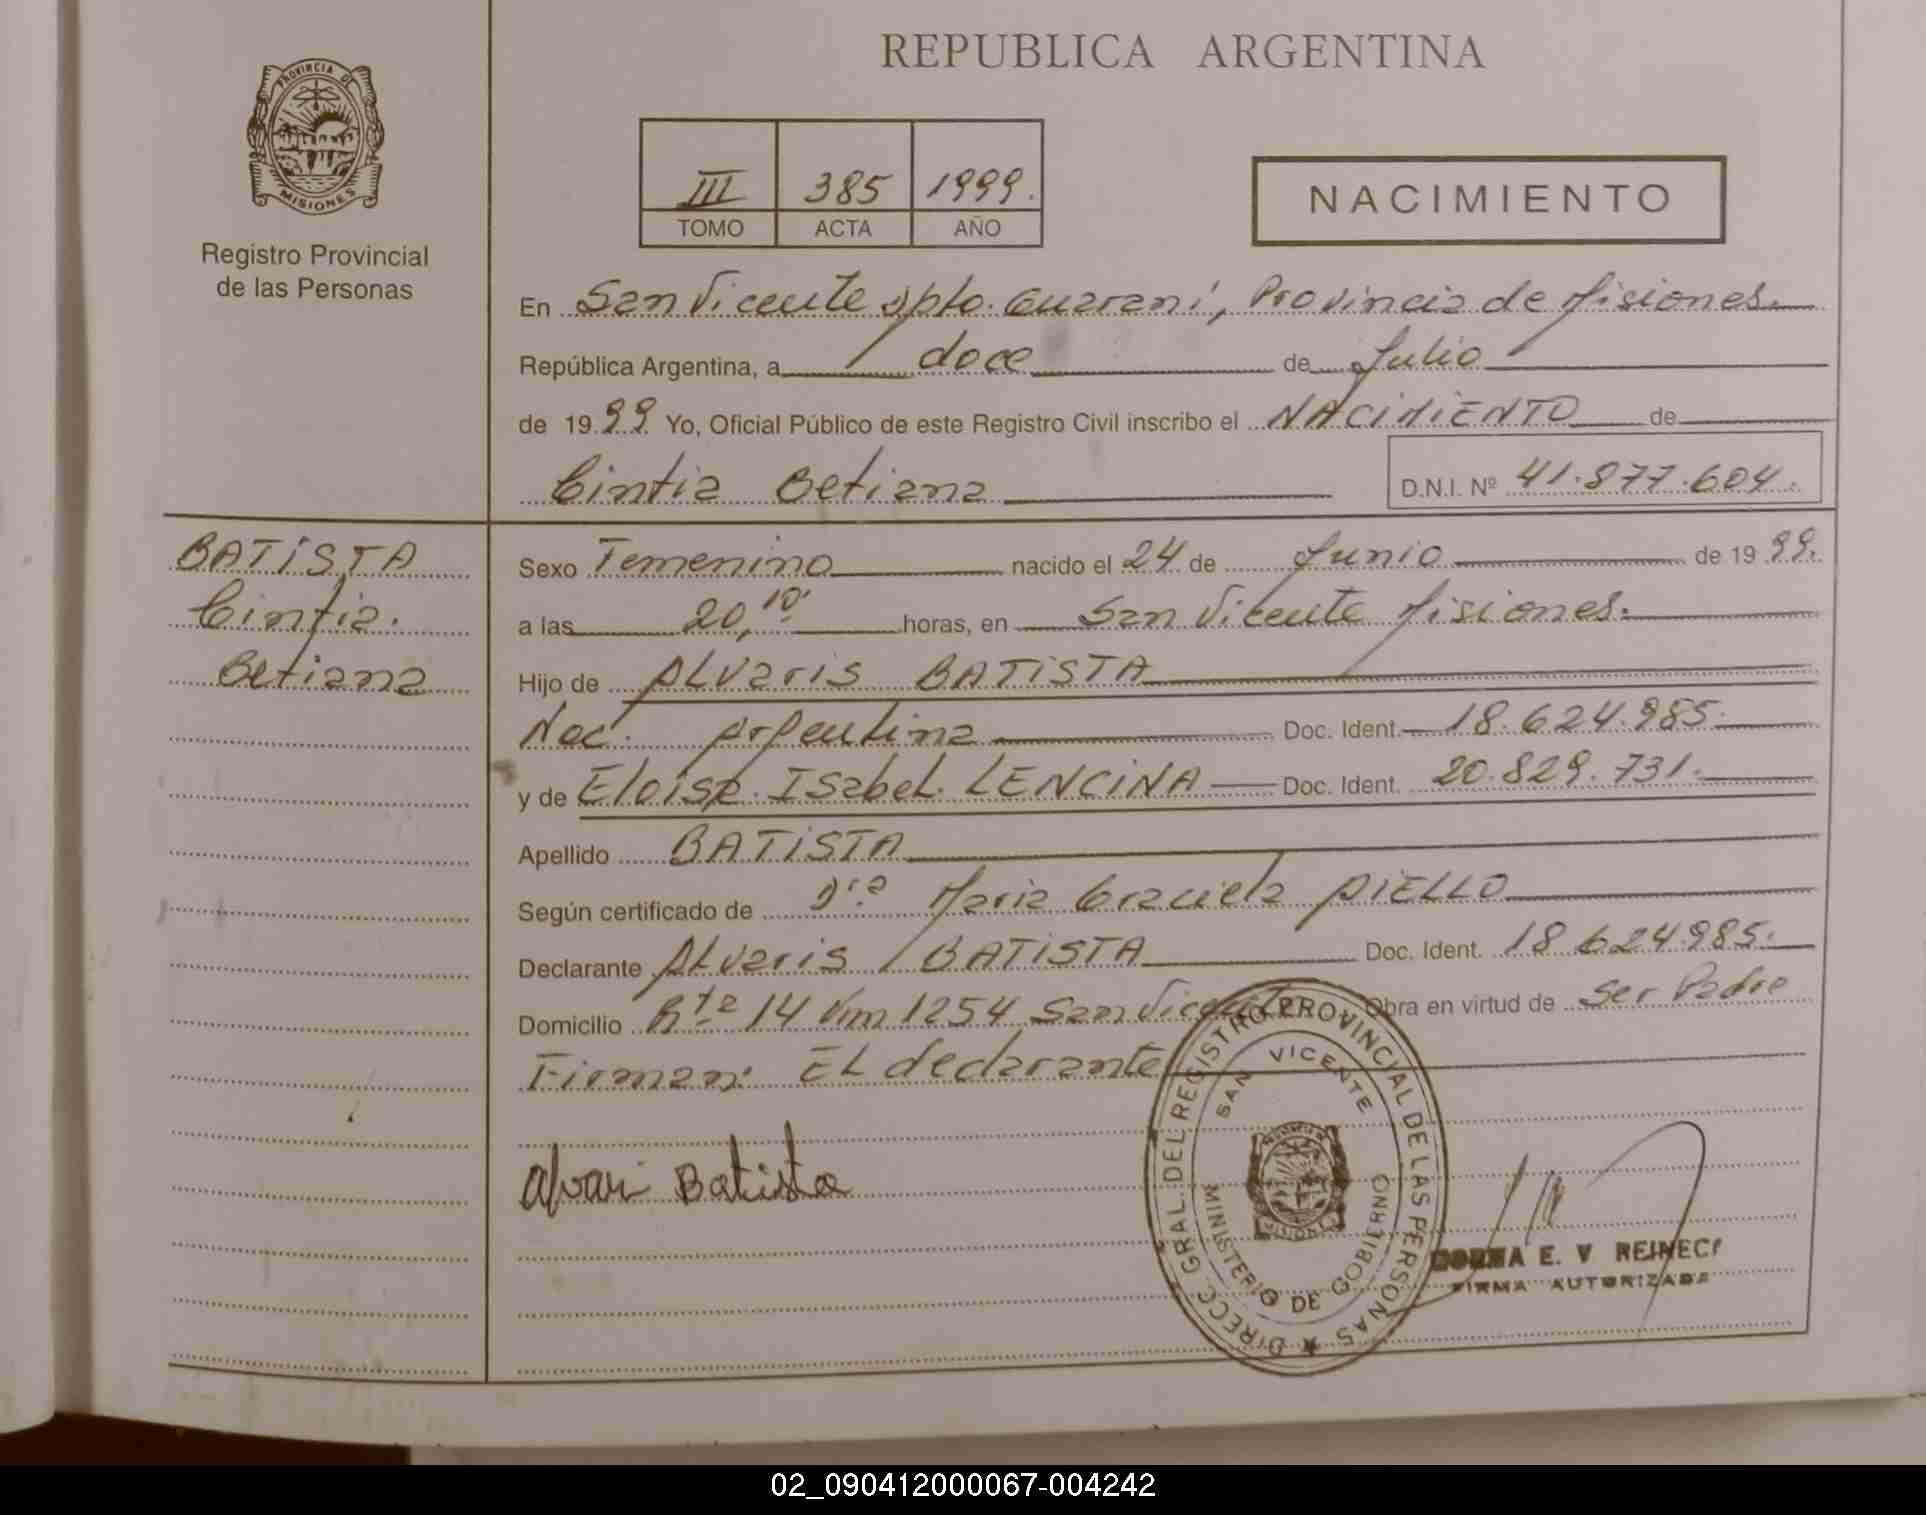 REPUBLICA ARGENTINA
PROVINCIA DE
MISIONES
Registro Provincial
de las Personas
III 385 1999.
TOMO ACTA AÑO
NACIMIENTO
En San Vicente Dpto. Guaraní, Provincia de Misiones.
República Argentina, a doce de Julio
de 1999 Yo, Oficial Público de este Registro Civil inscribo el NACIMIENTO de
Cintia Betiana D.N.I. Nº 41.877.604.
BATISTA
Cintia.
Betiana
Sexo Femenino nacido el 24 de Junio de 1999.
a las 20,10' horas, en San Vicente Misiones.
Hijo de ALVaris BATISTA
Nac. Argentina Doc. Ident. 18.624.985.
y de Eloisa. ISabeL. LENCINA Doc. Ident. 20.829.731.
Apellido BATISTA
Según certificado de Dra Maria Graciela AIELLO
Declarante ALVaris BATISTA Doc. Ident. 18.624.985.
Domicilio Rta 14 Km 1254 San Vicente Obra en virtud de Ser Padre
Firman: EL declarante
Alvari Batista
DIRECC. GRAL. DEL REGISTRO PROVINCIAL DE LAS PERSONAS
SAN VICENTE
MINISTERIO DE GOBIERNO
E. V
FIRMA AUTORIZADA
02_090412000067-004242